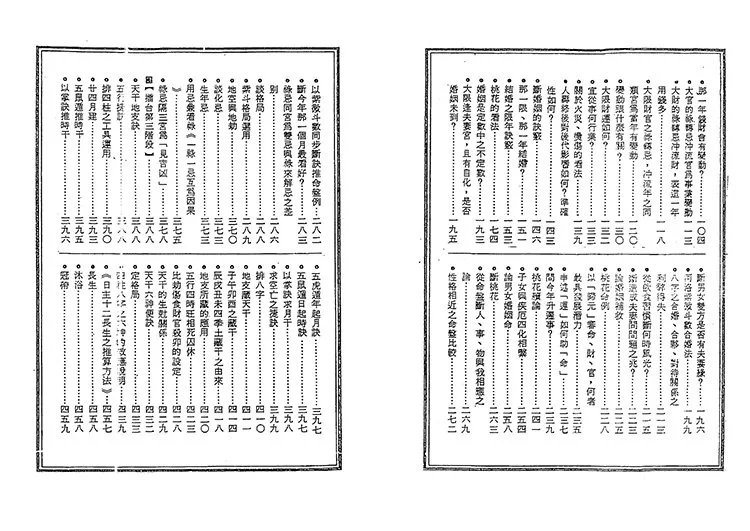 ●那一年錢財會有變動？……一○四
●大官的祿轉忌沖流官爲事業變動……一一三
●大財的祿轉忌沖流財，表這一年
用錢多……一一八
●大限財官之祿轉忌，沖流年之同
類宮爲當年有變動……一二○
●變動跟什麼有關？……一三○
●大限財運如何？……一三二
●宜從事何行業？……一三三
●關於火災、燙傷的看法……一三九
●人壽終後對後代影響如何？準確
性如何？……一四三
●斷婚姻的訣竅……一四六
●那一限、那一年結婚？……一五一
●結婚之限年訣竅……一五三
●桃花的看法……一七四
●婚姻是定數中之不定數？……一七九
●大限逢夫妻宮，且有自化，是否
婚姻未到？……一九五
●斷男女雙方是否有夫妻緣？……一九六
●河洛紫微斗數合婚法……一九九
●八字之合婚、合夥、對待關係之
利弊得失……二一三
●從飲食習慣斷何時風光？……二一五
●婚滬或夫妻間問題之兆？……二二三
●論婚姻補救……二二五
●桃花命例……二二八
●以「歸元」審命、財、官，何者
最具發展潛力……二三五
●申述「運」如何助「命」……二三七
●問今年升遷事？……二三九
●桃花續論……二四一
●子女與疾厄四化相繫……二五八
●論男女婚姻命……二五五
●斷桃花……二六三
●從命盤斷人、事、物與我相應之
論……二六九
●性格相近之命盤比較……二七二
●以紫微斗數同步斷訣推命盤例…二八二
●斷今年那一個月最看好？……二八三
●祿忌同宮爲雙忌與祿來解忌之差
別……二八六
●談格局……二八八
●紫斗格局選用……二八九
●地空與地劫……三七○
●談化忌……三七二
●生年忌……三七三
●用忌兼看祿《一祿一忌互爲因果
》……三七五
●祿忌隔三宮爲「見吉凶」……三七八
【擂台第三階段】……三八八
●天干地支訣……三八八
●排四柱之工具運用……三九○
●廿四月建……三九三
●五鼠遁推時干……三九四
●以掌訣推時干……三九六
●五虎遁年起月訣……三九七
●五鼠遁日起時訣……三九七
●以掌訣求月干……三九八
●求空亡之捷訣……三九九
●排八字……四一○
●地支藏天干……四一一
●子午卯酉之藏干……四一四
●辰戌丑未四季土藏干之由來……四一八
●地支所藏的應用……四二○
●五行四時旺相死囚休……四二三
●比劫傷食財官殺卯的設定……四二七
●天干的生剋關係……四二九
●天干六神便訣……四三二
●定格局……四三三
《日主十二長生之推算方法》……四五七
●長生……四五八
●沐浴……四五八
●冠術……四五九